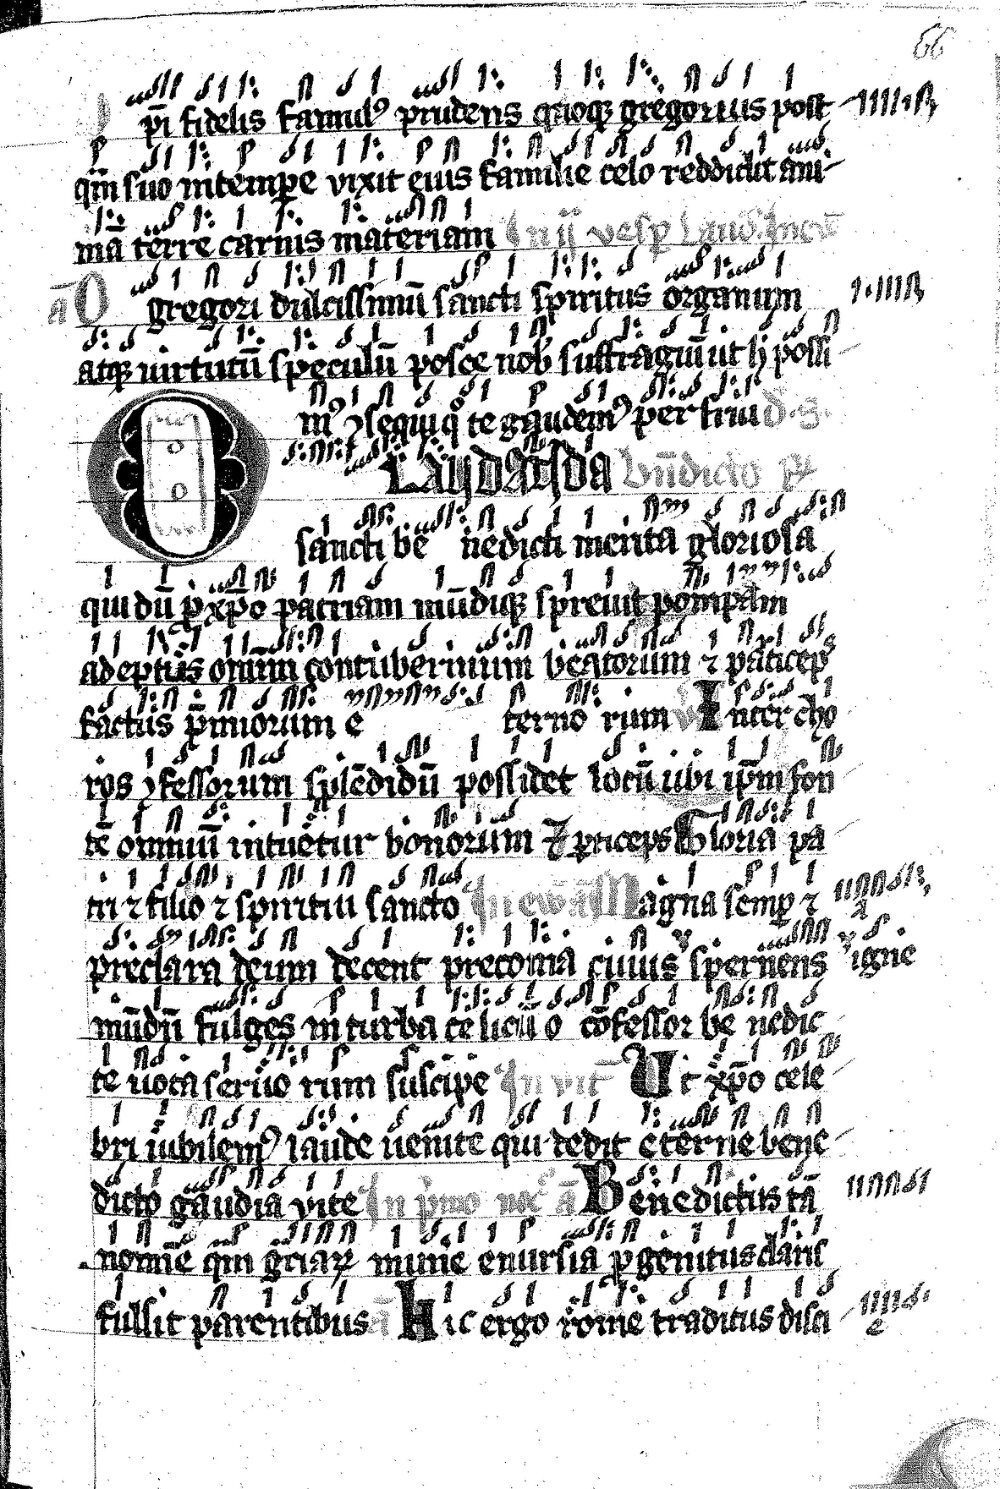 66
pi fidelis famul⁹ prudens quoq; gregorius post
qm̄ suo in tempe vixit eius familie celo reddidit ani
mā terre carnis materiam In ij vesp̄ Laud
ā O gregori dulcissimū sancti spiritus organum
atq; virtutū speculū posce nob̄ suffragiū ut h possi
m⁹ ꝯsequi q̊ te gaudem⁹ perfrui
LAUDANDA bn̄dicto
sancti be nedicti merita gloriosa
qui dū p xp̄o patriam mūdiq; sprevit pompam
adeptus omnium contubernium beatorum ⁊ p̄aticeps
factus p̄miorum e terno rum v Inter cho
ros ꝯfessorum splēdidū possidet locū ubi ip̄m fon
tē omniū intuetur bonorum Et p̄ticeps Gloria pa
tri ⁊ filio ⁊ spiritui sancto In ew̄ ā Magna semp ⁊
preclara deum decent preconia cuius spernens igne
mūdū fulges in turba celicū o cōfessor be nedic
te vota servo rum suscipe In vit̄ Ut xp̄o cele
bri iubilem⁹ laude venite qui dedit eterne bene
dicto gaudia vite In p̄mo noc̄ ā Benedictus tā
nomīe qm̄ gr̄iaꝝ munīe e nursia ꝓgenitus claris
fulsit parentibus ā Hic ergo rome traditus disci